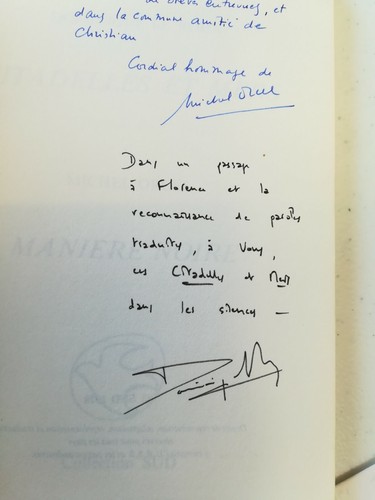 de brèves entrevues, et
dans la commune amitié de
Christian
Cordial hommage de
Michel Orcel
Dans un passage
à Florence et la
reconnaissance de paroles
traduites, à vous,
ces Citadelles et Mers
dans les silences —
MANIERE NOIRE
Collection SUD